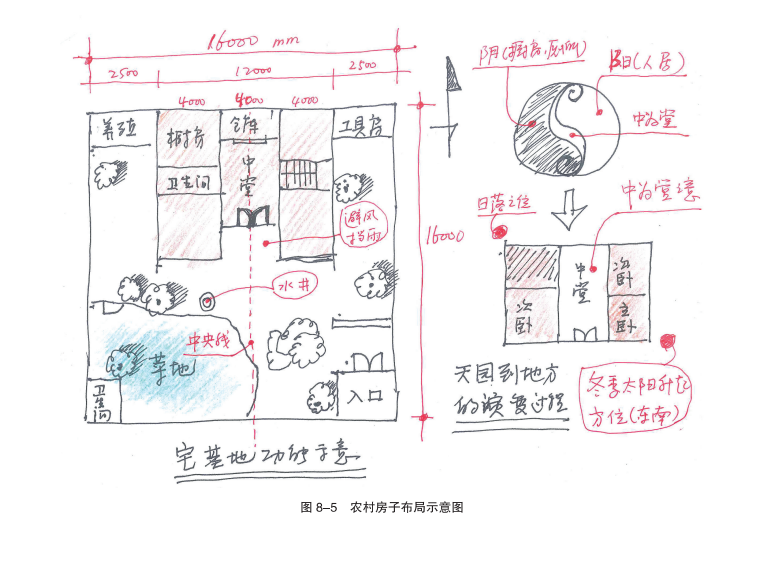 16000 mm
2500
12000
2500
4000
4000
4000
养殖
厨房
仓库
工具房
中堂
卫生间
避风
挡雨
水井
16000
中央线
草地
卫生间
入口
宅基地功能示意
阴(厨房,厕所)
阳(人居)
中为堂
日落之位
中为堂意
中堂
次卧
次卧
主卧
天圆到地方
的演变过程
冬季太阳升起
方位(东南)
图 8–5 农村房子布局示意图